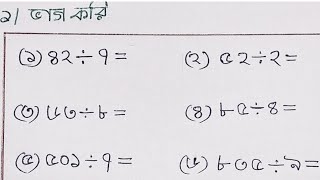 ২। ভাগ করি
(১) ৪২÷৭= (২) ৫২÷২=
(৩) ৬৩÷৮= (৪) ৮৫÷৪=
(৫) ৫০১÷৭= (৬) ৮০৫÷৯=